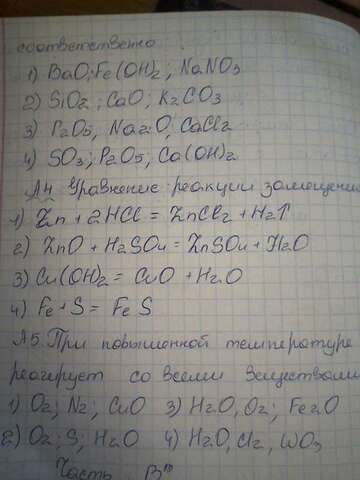 соответственно
1) BaO; Fe(OH)2; NaNO3
2) SiO2; CaO; K2CO3
3) P2O5, Na2O, CaCl2
4) SO3; P2O5; Ca(OH)2
А4 Уравнение реакции замещения
1) Zn + 2HCl = ZnCl2 + H2↑
2) ZnO + H2SO4 = ZnSO4 + H2O
3) Cu(OH)2 = CuO + H2O
4) Fe + S = FeS
А5 При повышенной температуре
реагирует со всеми веществами
1) O2; N2; CuO 3) H2O, O2; Fe2O
2) O2; S; H2O 4) H2O, Cl2, WO3
Часть "В"